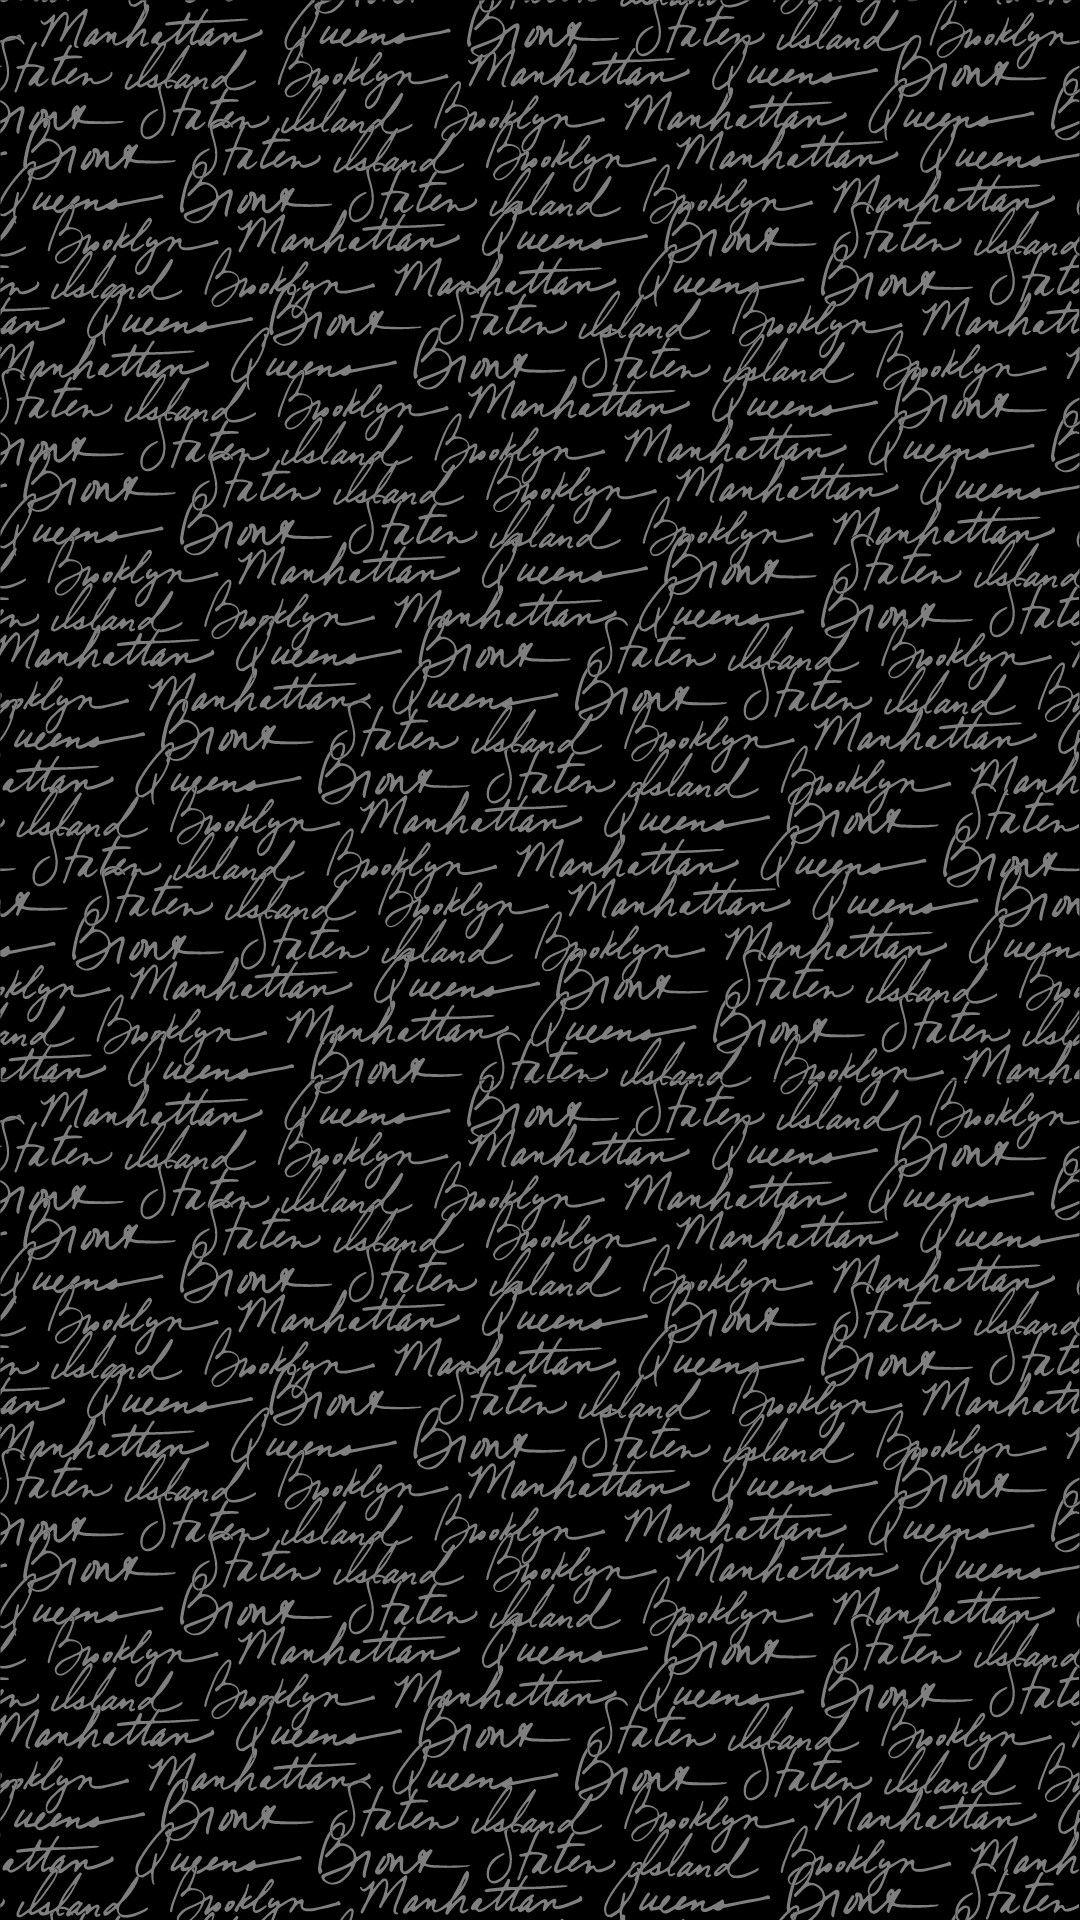 Manhattan Queens Bronx Staten island Brooklyn
Staten island Brooklyn Manhattan Queens Bronx
Bronx Staten island Brooklyn Manhattan Queens
Bronx Staten island Brooklyn Manhattan Queens
Queens Bronx Staten island Brooklyn Manhattan
Brooklyn Manhattan Queens Bronx Staten island
island Brooklyn Manhattan Queens Bronx
Queens Bronx Staten island Brooklyn
Manhattan Queens Bronx Staten island Brooklyn
Staten island Brooklyn Manhattan Queens Bronx
Bronx Staten island Brooklyn Manhattan Queens
Bronx Staten island Brooklyn Manhattan Queens
Queens Bronx Staten island Brooklyn Manhattan
Brooklyn Manhattan Queens Bronx Staten island
island Brooklyn Manhattan Queens Bronx
Manhattan Queens Bronx Staten island Brooklyn
Manhattan Queens Bronx Staten island
Queens Bronx Staten island Brooklyn Manhattan
Queens Bronx Staten island Brooklyn
island Brooklyn Manhattan Queens Bronx Staten
Staten island Brooklyn Manhattan Queens Bronx
Staten island Brooklyn Manhattan Queens
Bronx Staten island Brooklyn Manhattan Queens
Manhattan Queens Bronx Staten island
Brooklyn Manhattan Queens Bronx Staten
Queens Bronx Staten island Brooklyn
Manhattan Queens Bronx Staten island Brooklyn
Staten island Brooklyn Manhattan Queens Bronx
Bronx Staten island Brooklyn Manhattan Queens
Bronx Staten island Brooklyn Manhattan Queens
Queens Bronx Staten island Brooklyn Manhattan
Brooklyn Manhattan Queens Bronx Staten island
island Brooklyn Manhattan Queens Bronx
Queens Bronx Staten island Brooklyn
Manhattan Queens Bronx Staten island Brooklyn
Staten island Brooklyn Manhattan Queens Bronx
Bronx Staten island Brooklyn Manhattan Queens
Bronx Staten island Brooklyn Manhattan Queens
Queens Bronx Staten island Brooklyn Manhattan
Brooklyn Manhattan Queens Bronx Staten island
island Brooklyn Manhattan Queens Bronx
Manhattan Queens Bronx Staten island Brooklyn
Manhattan Queens Bronx Staten island
Queens Bronx Staten island Brooklyn Manhattan
Queens Bronx Staten island Brooklyn
island Brooklyn Manhattan Queens Bronx Staten